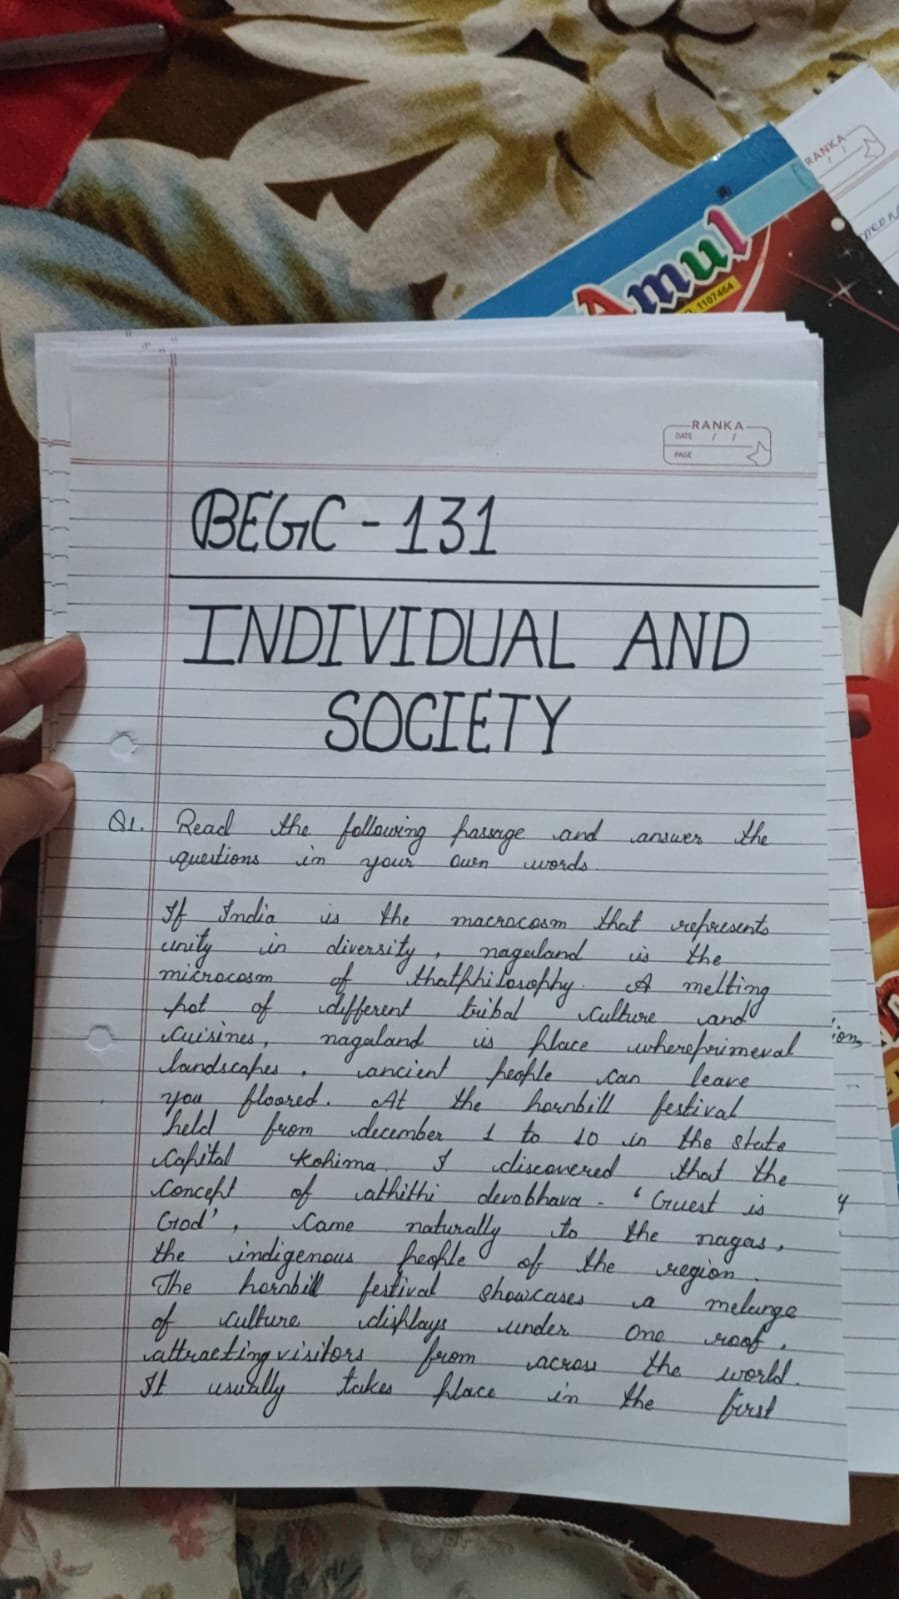 RANKA
Amul
1107464
RANKA
DATE / /
PAGE
BEGC - 131
INDIVIDUAL AND
SOCIETY
Q1. Read the following passage and answer the
questions in your own words.
If India is the macrocosm that represents
unity in diversity, nagaland is the
microcosm of thatphilosophy. A melting
pot of different tribal culture and
cuisines, nagaland is place whereprimeval
landscapes, ancient people can leave
you floored. At the hornbill festival
held from december 1 to 10 in the state
capital kohima. I discovered that the
concept of athithi devobhava - 'Guest is
God', came naturally to the nagas,
the indigenous people of the region.
The hornbill festival showcases a melange
of culture displays under one roof,
attractingvisitors from across the world.
It usually takes place in the first